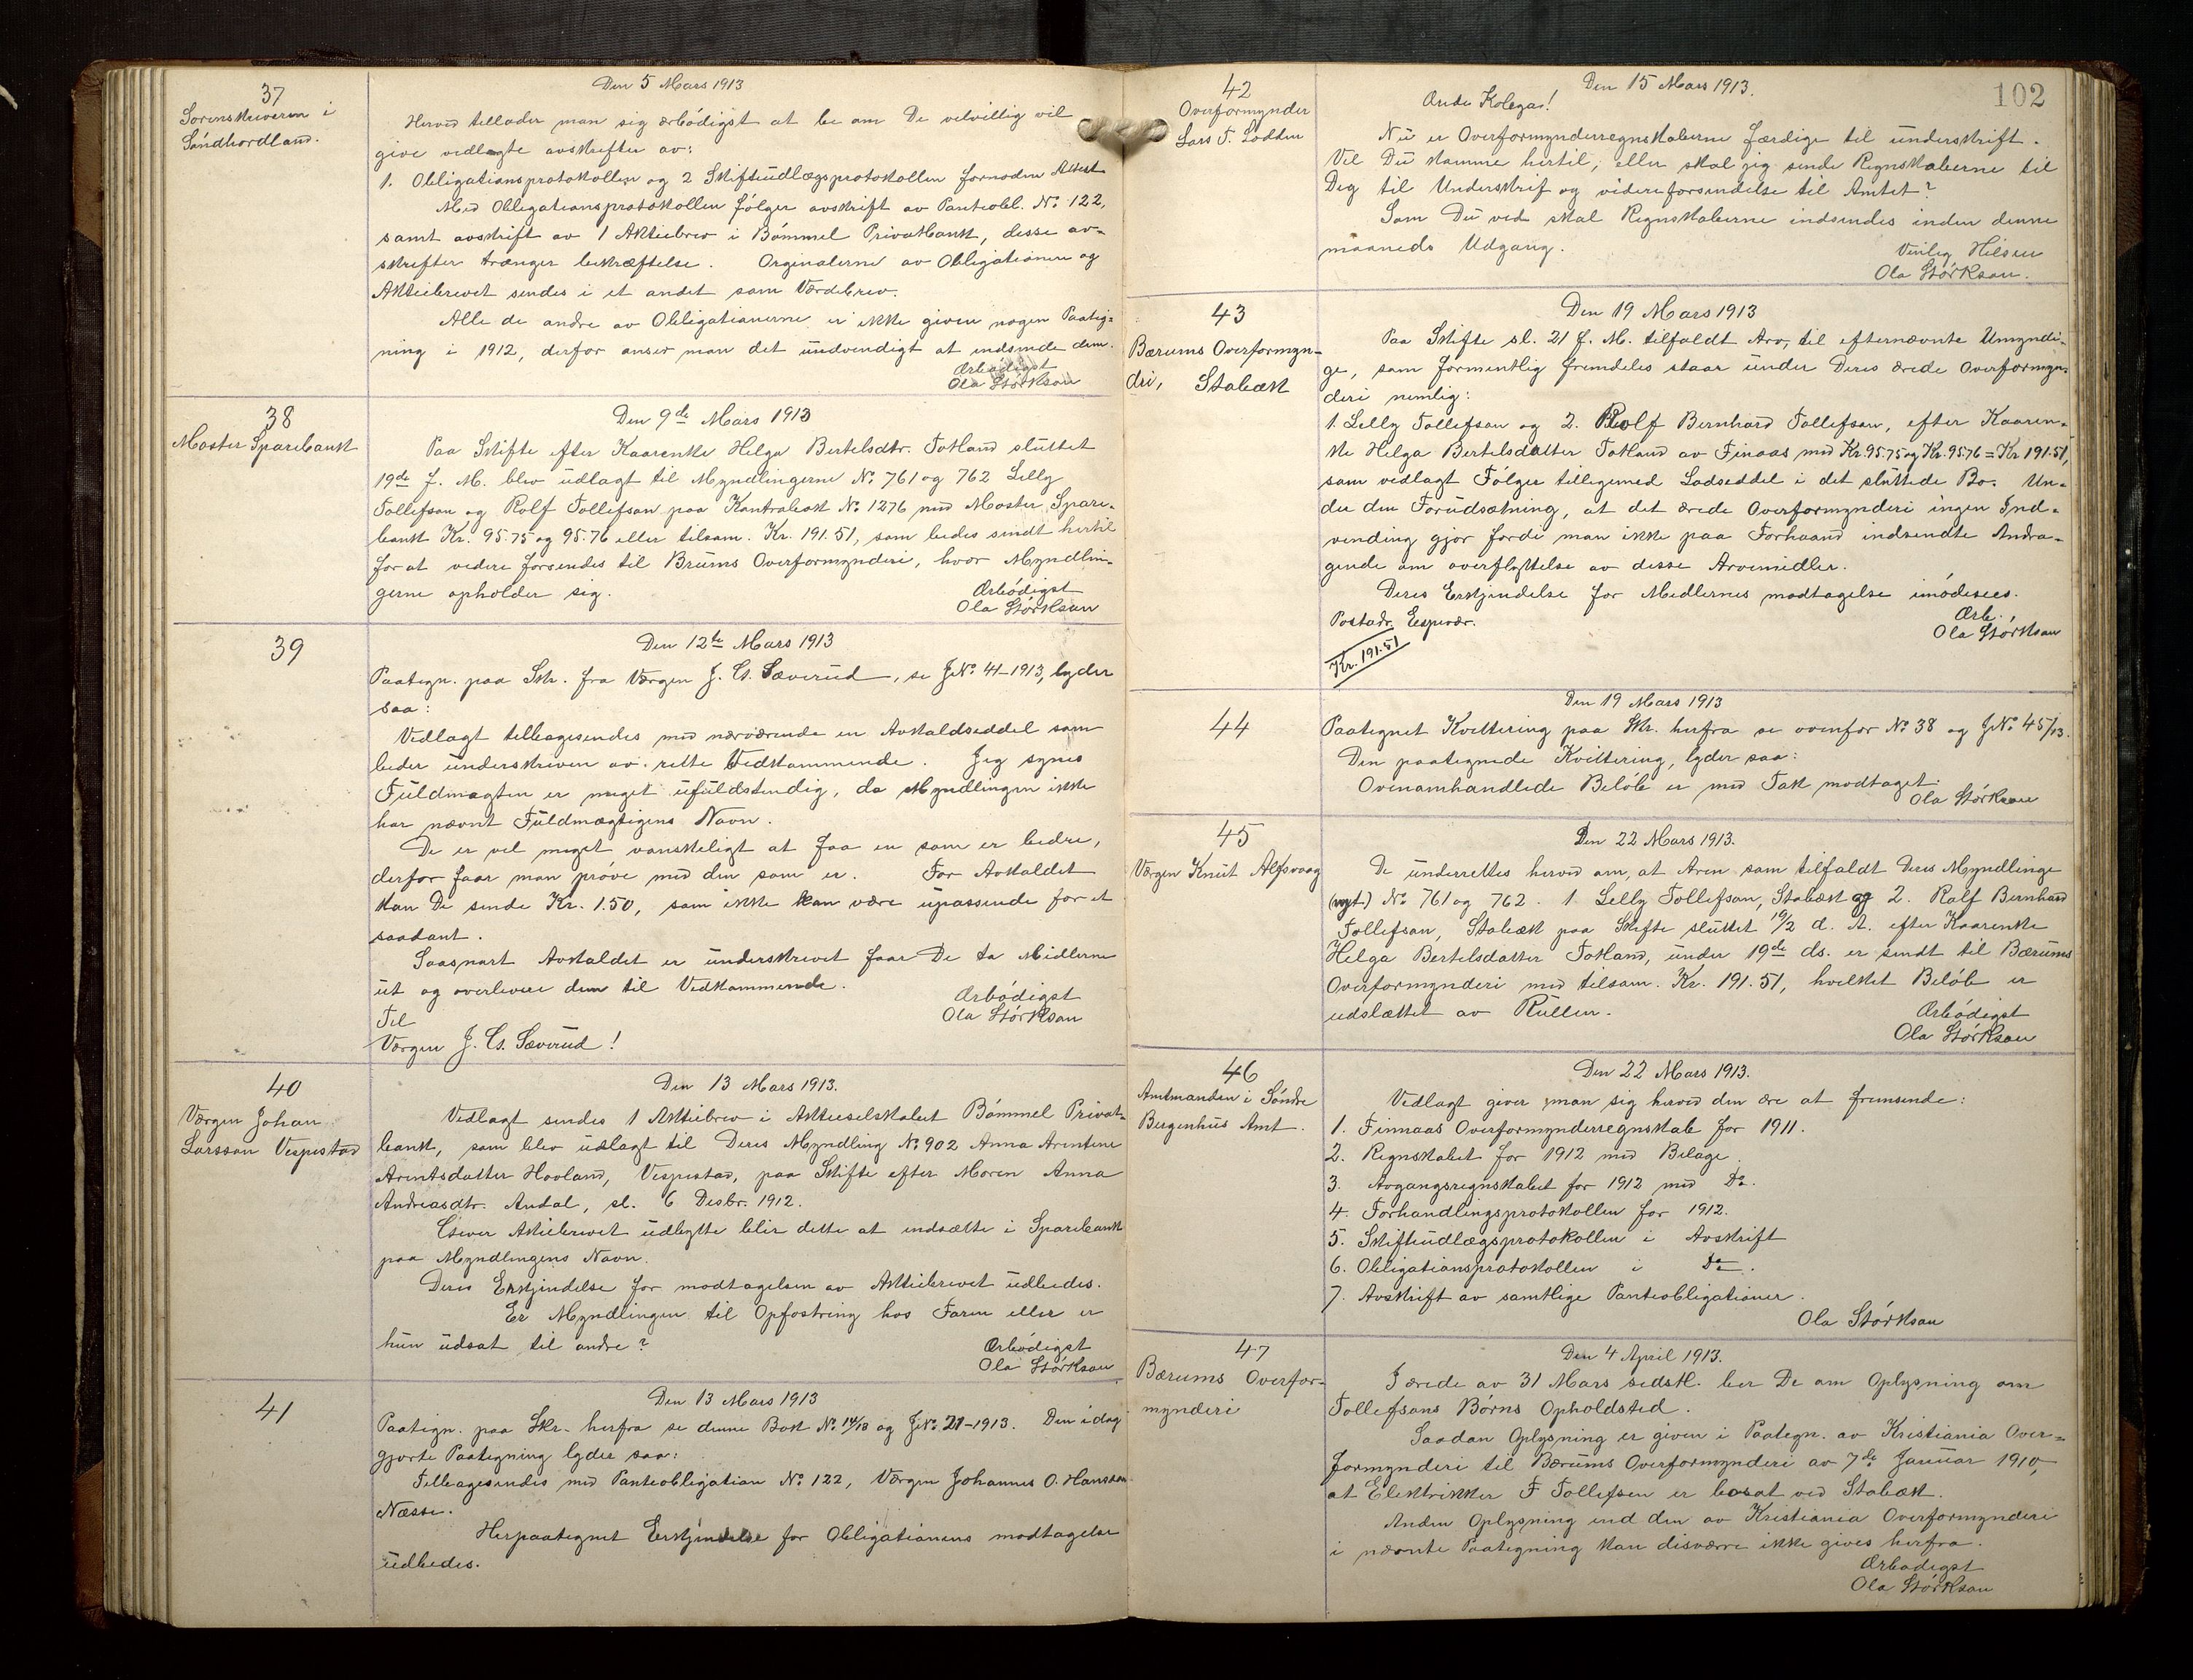 37
Sorenskriveren i
Söndhordland.
Den 5 Mars 1913
Herved tillader man sig ærbödigst at be om De velvillig vil
give vedlagte avskrifter av:
1. Obligationsprotokollen og 2 Skifteudlægsprotokollen fornoden Attest
Med Obligationsprotokollen fölger avskrift av Panteobl. No. 122,
samt avskrift av 1 Aktiebrev i Bömmel Privatbank, desse av-
skrifter trænger bekræftelse. Orginalerne av Obligationen og
Aktiebrevet sendes i et andet som Værdebrev.
Alle de andre av Obligationerne er ikke given nogen Paateg-
ning i 1912, derfor anser man det unödvendigt at indsende dem.
Ærbödigst
Ola Störkson
38
Moster Sparebank
Den 9de Mars 1913
Paa Skifte efter Kaarenke Helga Bertelsdtr. Totland sluttet
19de f. M. blev udlagt til Myndlingerne No. 761 og 762 Lelly
Tollefson og Rolf Tollefson paa Kontrabok No. 1276 med Moster Spare-
bank Kr. 95.75 og 95.76 eller tilsam. Kr. 191.51, som bedes sendt hertil
for at videre forsendes til Brums Overformynderi, hvor Myndlin-
gerne opholder sig.
Ærbödigst
Ola Störkson
39
Den 12te Mars 1913
Paategn. paa Skr. fra Værgen J. G. Sæverud, se JNo. 41-1913, lyder
saa:
Vedlagt tilbagesendes med nærværende en Avkaldseddel som
beder underskreven av rette Vedkommende. Jeg synes
Fuldmagten er meget ufuldstendig, da Myndlingen ikke
har nævnt Fuldmægtigens Navn.
De er vel meget vanskeligt at faa en som er bedre,
derfor faar man pröve med den som er. For Avkaldet
kan De sende Kr. 1.50, som ikke kan være upassende for et
saadant.
Saasnart Avkaldet er underskrevet faar De ta Midlerne
ut og overlevere dem til Vedkommende.
Ærbödigst
Til Ola Störkson
Værgen J. G. Sæverud!
40
Værgen Johan
Larsson Vespestad
Den 13 Mars 1913.
Vedlagt sendes 1 Aktiebrev i Aktieselskabet Bömmel Privat-
bank, som blev udlagt til Deres Myndling No. 902 Anna Arentine
Arentsdatter Hovland, Vespestad, paa Skifte efter Moren Anna
Andreasdtr. Andal, sl. 6 Desbr. 1912.
Giver Aktiebrevet udbytte blir dette at indsætte i Sparebank
paa Myndlingens Navn.
Deres Erkjendelse for modtagelsen av Aktiebrevet udbedes.
Er Myndlingen til Opfostring hos Faren eller er
hun udsat til andre?
Ærbödigst
Ola Störkson
41
Den 13 Mars 1913
Paategn. paa Skr. herfra se denne Bok No. 14/13 og JNo. 21-1913. Den i dag
gjorte Paategning lyder saa:
Tilbagesendes med Panteobligation No. 122, Værgen Johannes O. Hansson
Næsse.
Herpaategnet Erkjendelse for Obligationens modtagelse
udbedes.
102
42
Overformynder
Lars T. Lodden
Den 15 Mars 1913.
Gode Kolega!
Nu er Overformynderregnskaberne færdige til underskrift.
Vil Du komme hertil, eller skal jeg sende Regnskaberne til
Deg til Underskrif og videreforsendelse til Amtet?
Som Du ved skal Regnskaberne indsendes inden denne
maaneds Udgang.
Venlig Hilsen
Ola Störkson.
43
Bærums Overformyn-
deri, Stabæk
Den 19 Mars 1913
Paa Skifte sl. 21 f. M. tilfaldt Arv, til efternævnte Umyndi-
ge, som formentlig fremdeles staar under Deres ærede Overformyn-
deri nemlig:
1. Lelly Tollefson og 2. Rolf Bernhard Tollefson, efter Kaaren-
ke Helga Bertelsdatter Totland av Finaas med Kr. 95.75 og Kr. 95.76 = Kr 191.51,
som vedlagt Fölger tilligemed Lodseddel i det sluttede Bo. Un-
der den Forudsætning, at det ærede Overformynderi ingen Ind-
vending gjor fordi man ikke paa Forhaand indsendte Andra-
gende om overflyttelse av disse Arvemidler.
Deres Erkjendelse for Medlernes modtagelse imödesees.
Postadr. Espevær.
Ærb.
Ola Störkson
Kr. 191.51
44
Den 19 Mars 1913
Paategnet Kvittering paa Skr. herfra se ovenfor No 38 og JNo. 45/13.
Den paategnede Kvittering, lyder saa:
Ovenomhandlede Belöb er med Tak modtaget.
Ola Störkson
45
Værgen Knut Alfsvaag
Den 22 Mars 1913.
De underrettes herved om, at Arven som tilfaldt Deres Myndlinge
(nyt) No. 761 og 762. 1. Lelly Tollefson, Stabæk og 2. Rolf Bernhard
Tollefson, Stabæk paa Skifte sluttet 19/2 d. A. efter Kaarenke
Helga Bertelsdatter Totland, under 19de ds. er sendt til Bærums
Overformynderi med tilsam. Kr. 191.51, hvelket Belöb er
udslættet av Rullen.
Ærbödigst
Ola Störkson
46
Amtmanden i Söndre
Bergenhus Amt.
Den 22 Mars 1913.
Vedlagt giver man sig herved den ære at fremsende:
1. Finnaas Overformynderregnskab for 1911.
2. Regnskabet for 1912 med Bilage.
3. Avgangsregnskabet for 1912 med Do.
4. Forhandlingsprotokollen for 1912.
5. Skifteudlægsprotokollen i Avskrift
6. Obligationsprotokollen i Do.
7. Avskrift av samtlige Panteobligationer.
Ola Störkson
47
Bærums Overfor-
mynderi
Den 4 April 1913.
I ærede av 31 Mars sedstl. ber De om Oplysning om
Tollefsons Börns Opholdsted.
Saadan Oplysning er given i Paategn. av Kristiania Over-
formynderi til Bærums Overformynderi av 7de Januar 1910,
at Elektrikker F Tollefsen er bosat ved Stabæk.
Anden Oplysning end den av Kristiania Overformynderi
i nævnte Paategning kan disværre ikke gives herfra.
Ærbödigst
Ola Störkson